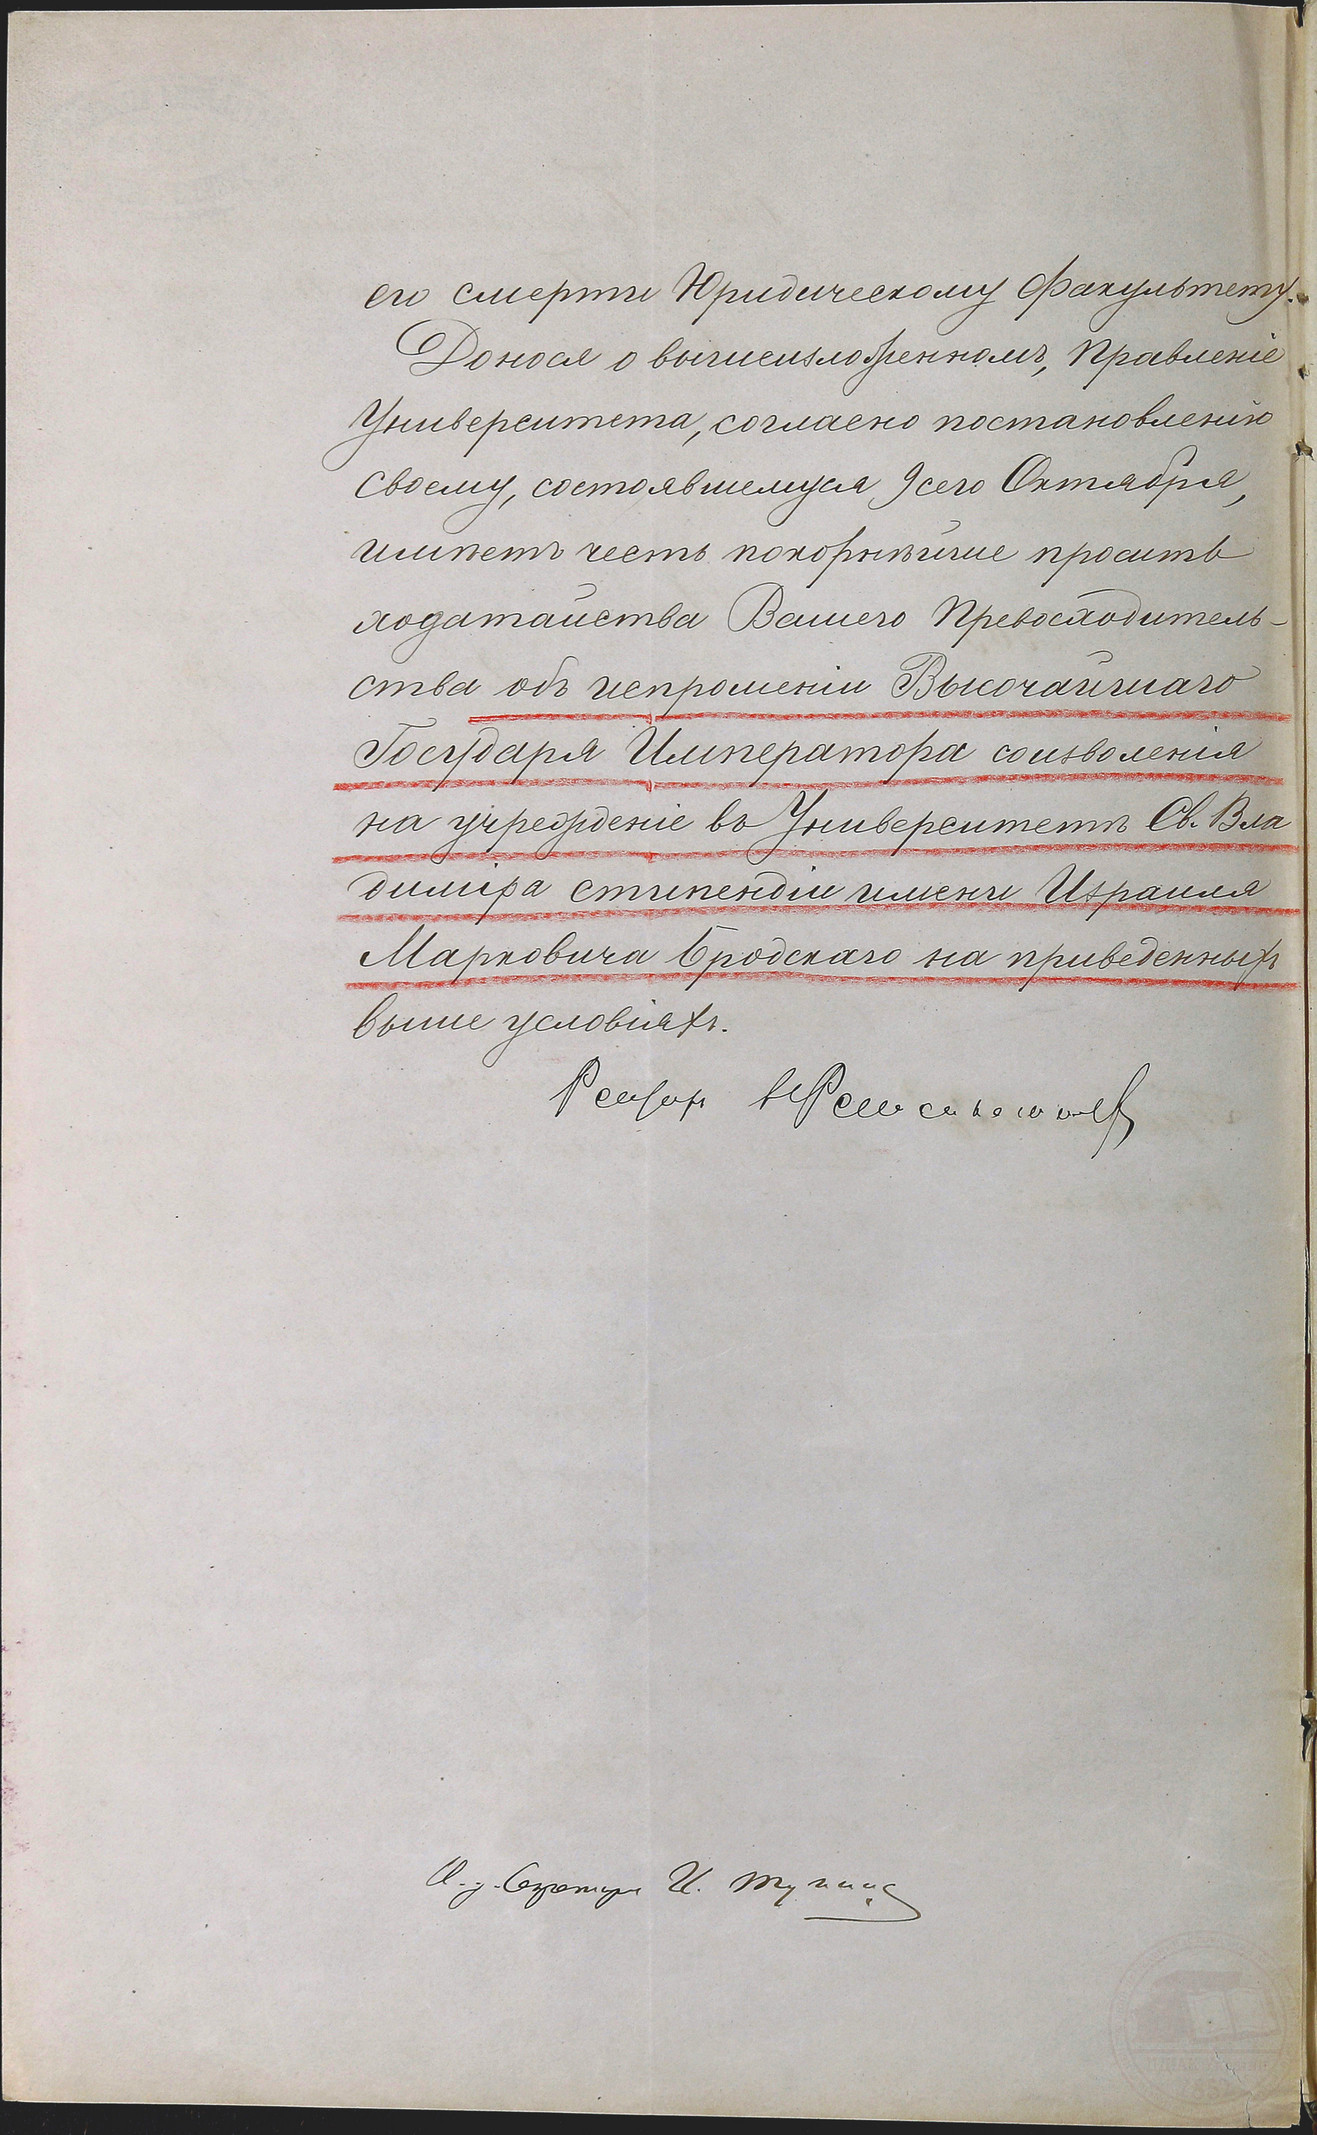 его смерти Юридическому Факультету.
Донося о вышеизложенномъ, Правленіе
Университета, согласно постановленію
своему, состоявшемуся 9 сего Октября,
имѣетъ честь покорнѣйше просить
ходатайства Вашего Превосходитель-
ства объ испрошеніи Высочайшаго
Государя Императора соизволенія
на учрежденіе въ Университетѣ Св. Вла
диміра стипендіи имени Израиля
Марковича Бродскаго на приведенныхъ
выше условіяхъ.
Ректоръ
И. д. Секретаря И.